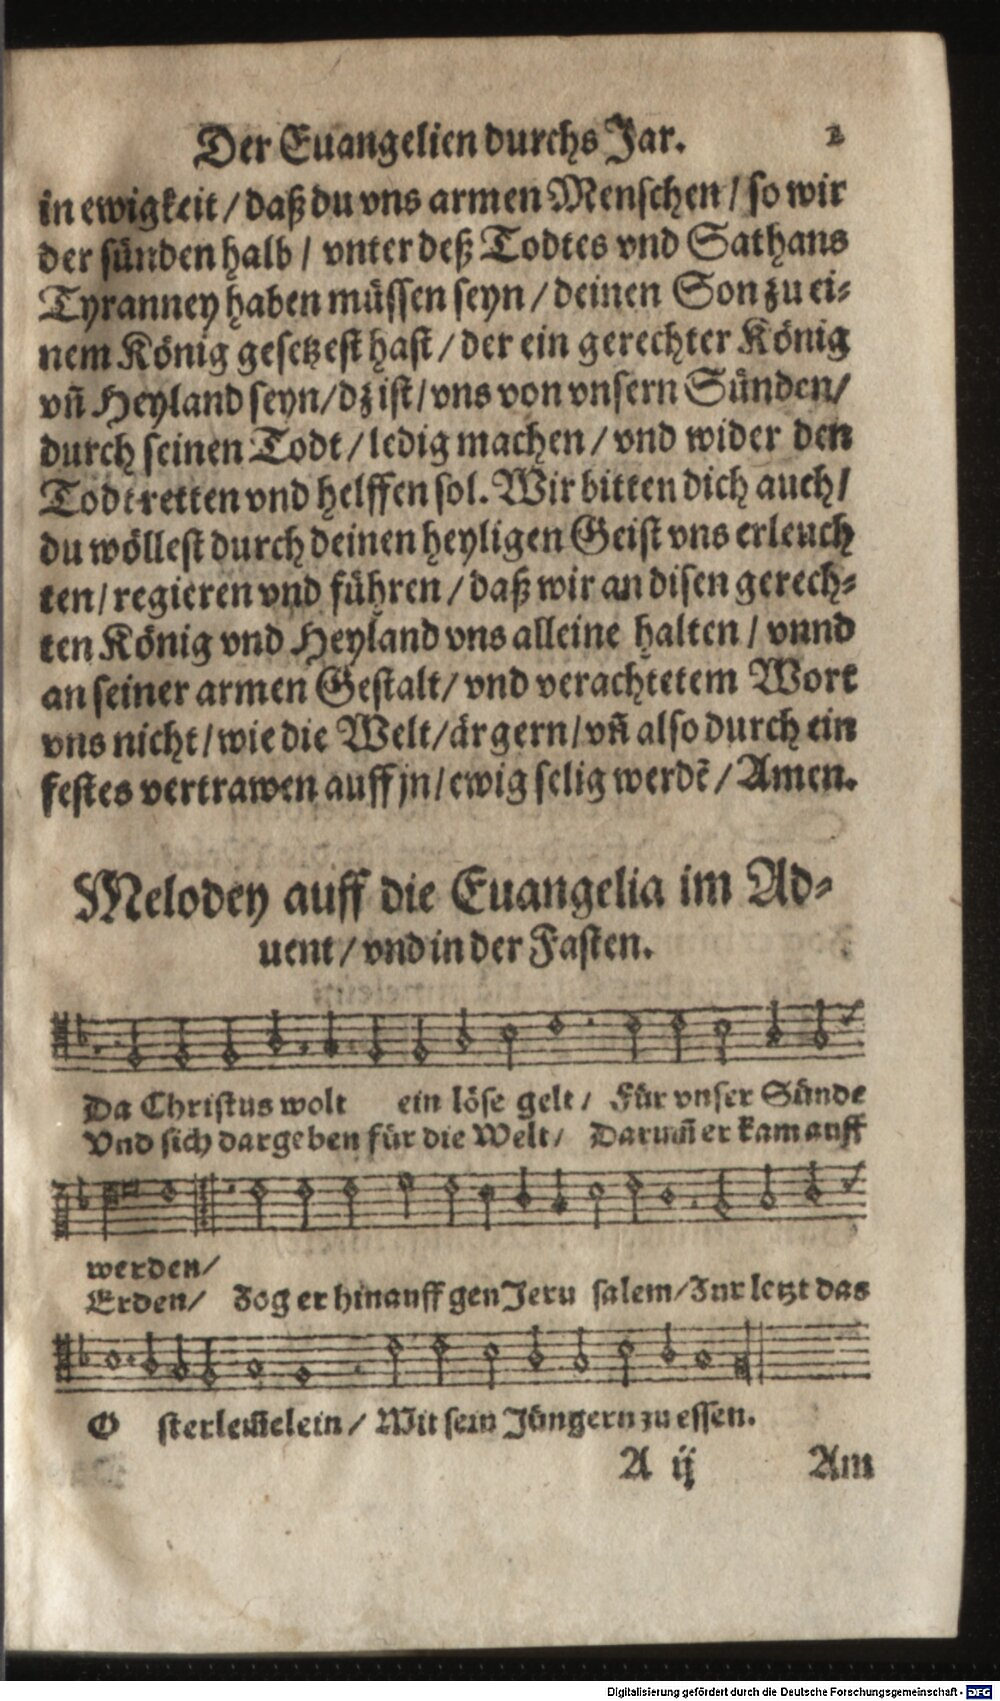 Der Euangelien durchs Jar. 2
in ewigkeit / daß du vns armen Menschen / so wir
der sünden halb / vnter deß Todtes vnd Sathans
Tyranney haben müssen seyn / deinen Son zu ei-
nem König gesetzest hast / der ein gerechter König
vñ Heyland seyn / dz ist / vns von vnsern Sünden /
durch seinen Todt / ledig machen / vnd wider den
Todt retten vnd helffen sol. Wir bitten dich auch /
du wöllest durch deinen heyligen Geist vns erleuch
ten / regieren vnd führen / daß wir an disen gerech-
ten König vnd Heyland vns alleine halten / vnnd
an seiner armen Gestalt / vnd verachtetem Wort
vns nicht / wie die Welt / ärgern / vñ also durch ein
festes vertrawen auff jn / ewig selig werdẽ / Amen.
Melodey auff die Euangelia im Ad-
uent / vnd in der Fasten.
Da Christus wolt ein löse gelt / Für vnser Sünde
Vnd sich dargeben für die Welt / Darum̃ er kam auff
werden /
Erden / Zog er hinauff gen Jeru salem / Zur letzt das
O sterlem̃elein / Mit sein Jüngern zu essen.
A ij Am
Digitalisierung gefördert durch die Deutsche Forschungsgemeinschaft - DFG